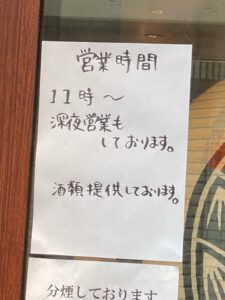 営業時間
11時～
深夜営業も
しております。
酒類提供しております。
分煙しております